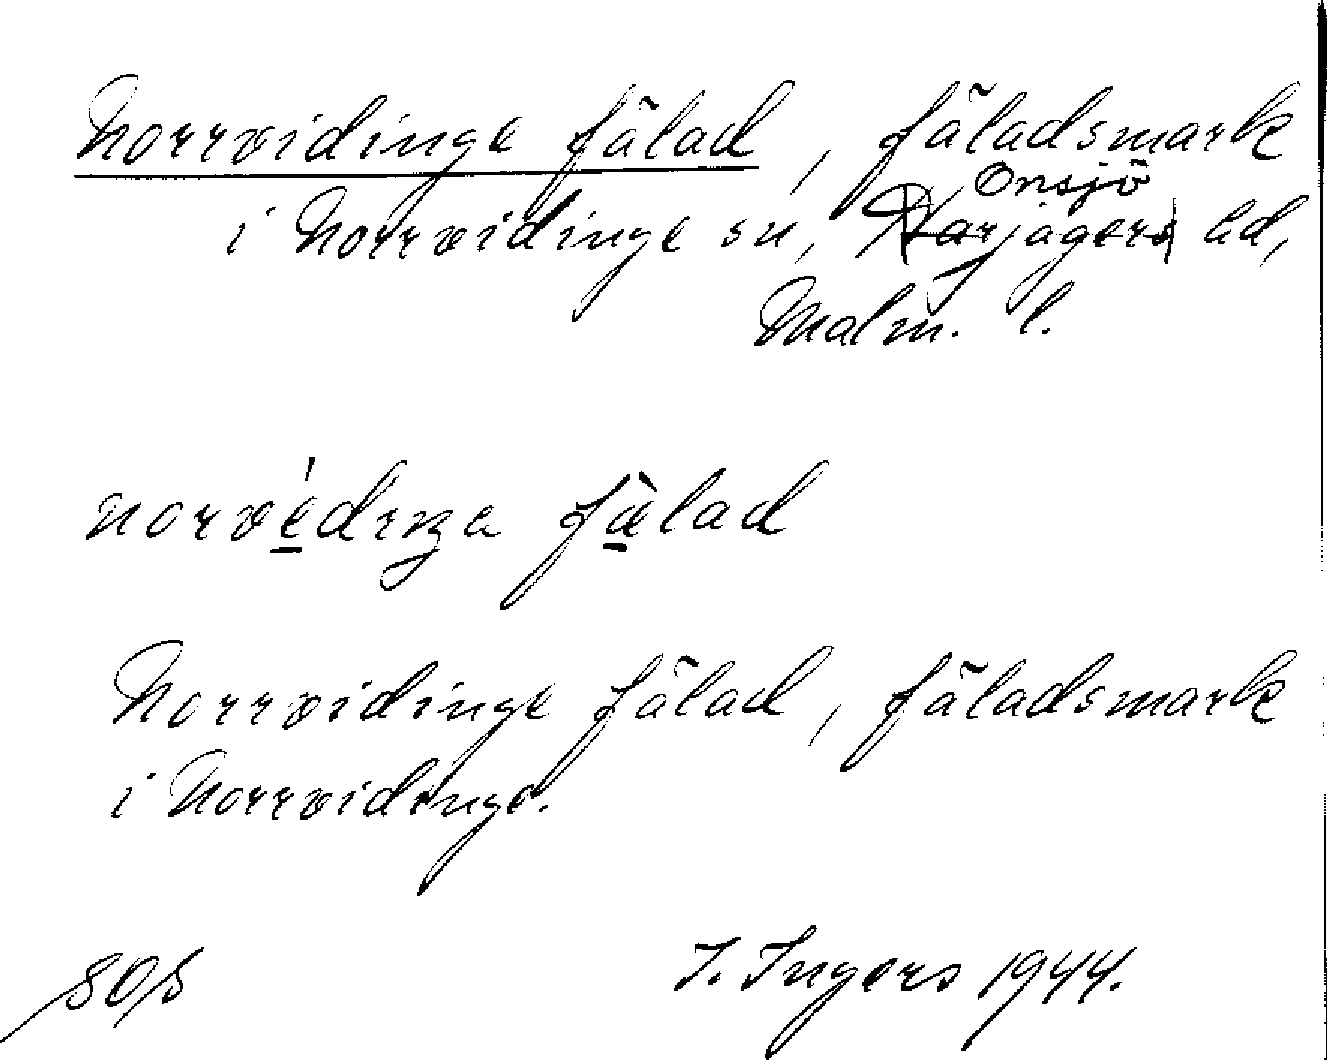 Norrvidinge fälad, fäladsmark
i Norrvidinge sn, Onsjö hd,
Malm. l.
norvédıŋa fàlad
Norrvidinge fälad, fäladsmark
i Norrvidinge.
I. Ingers 1944.